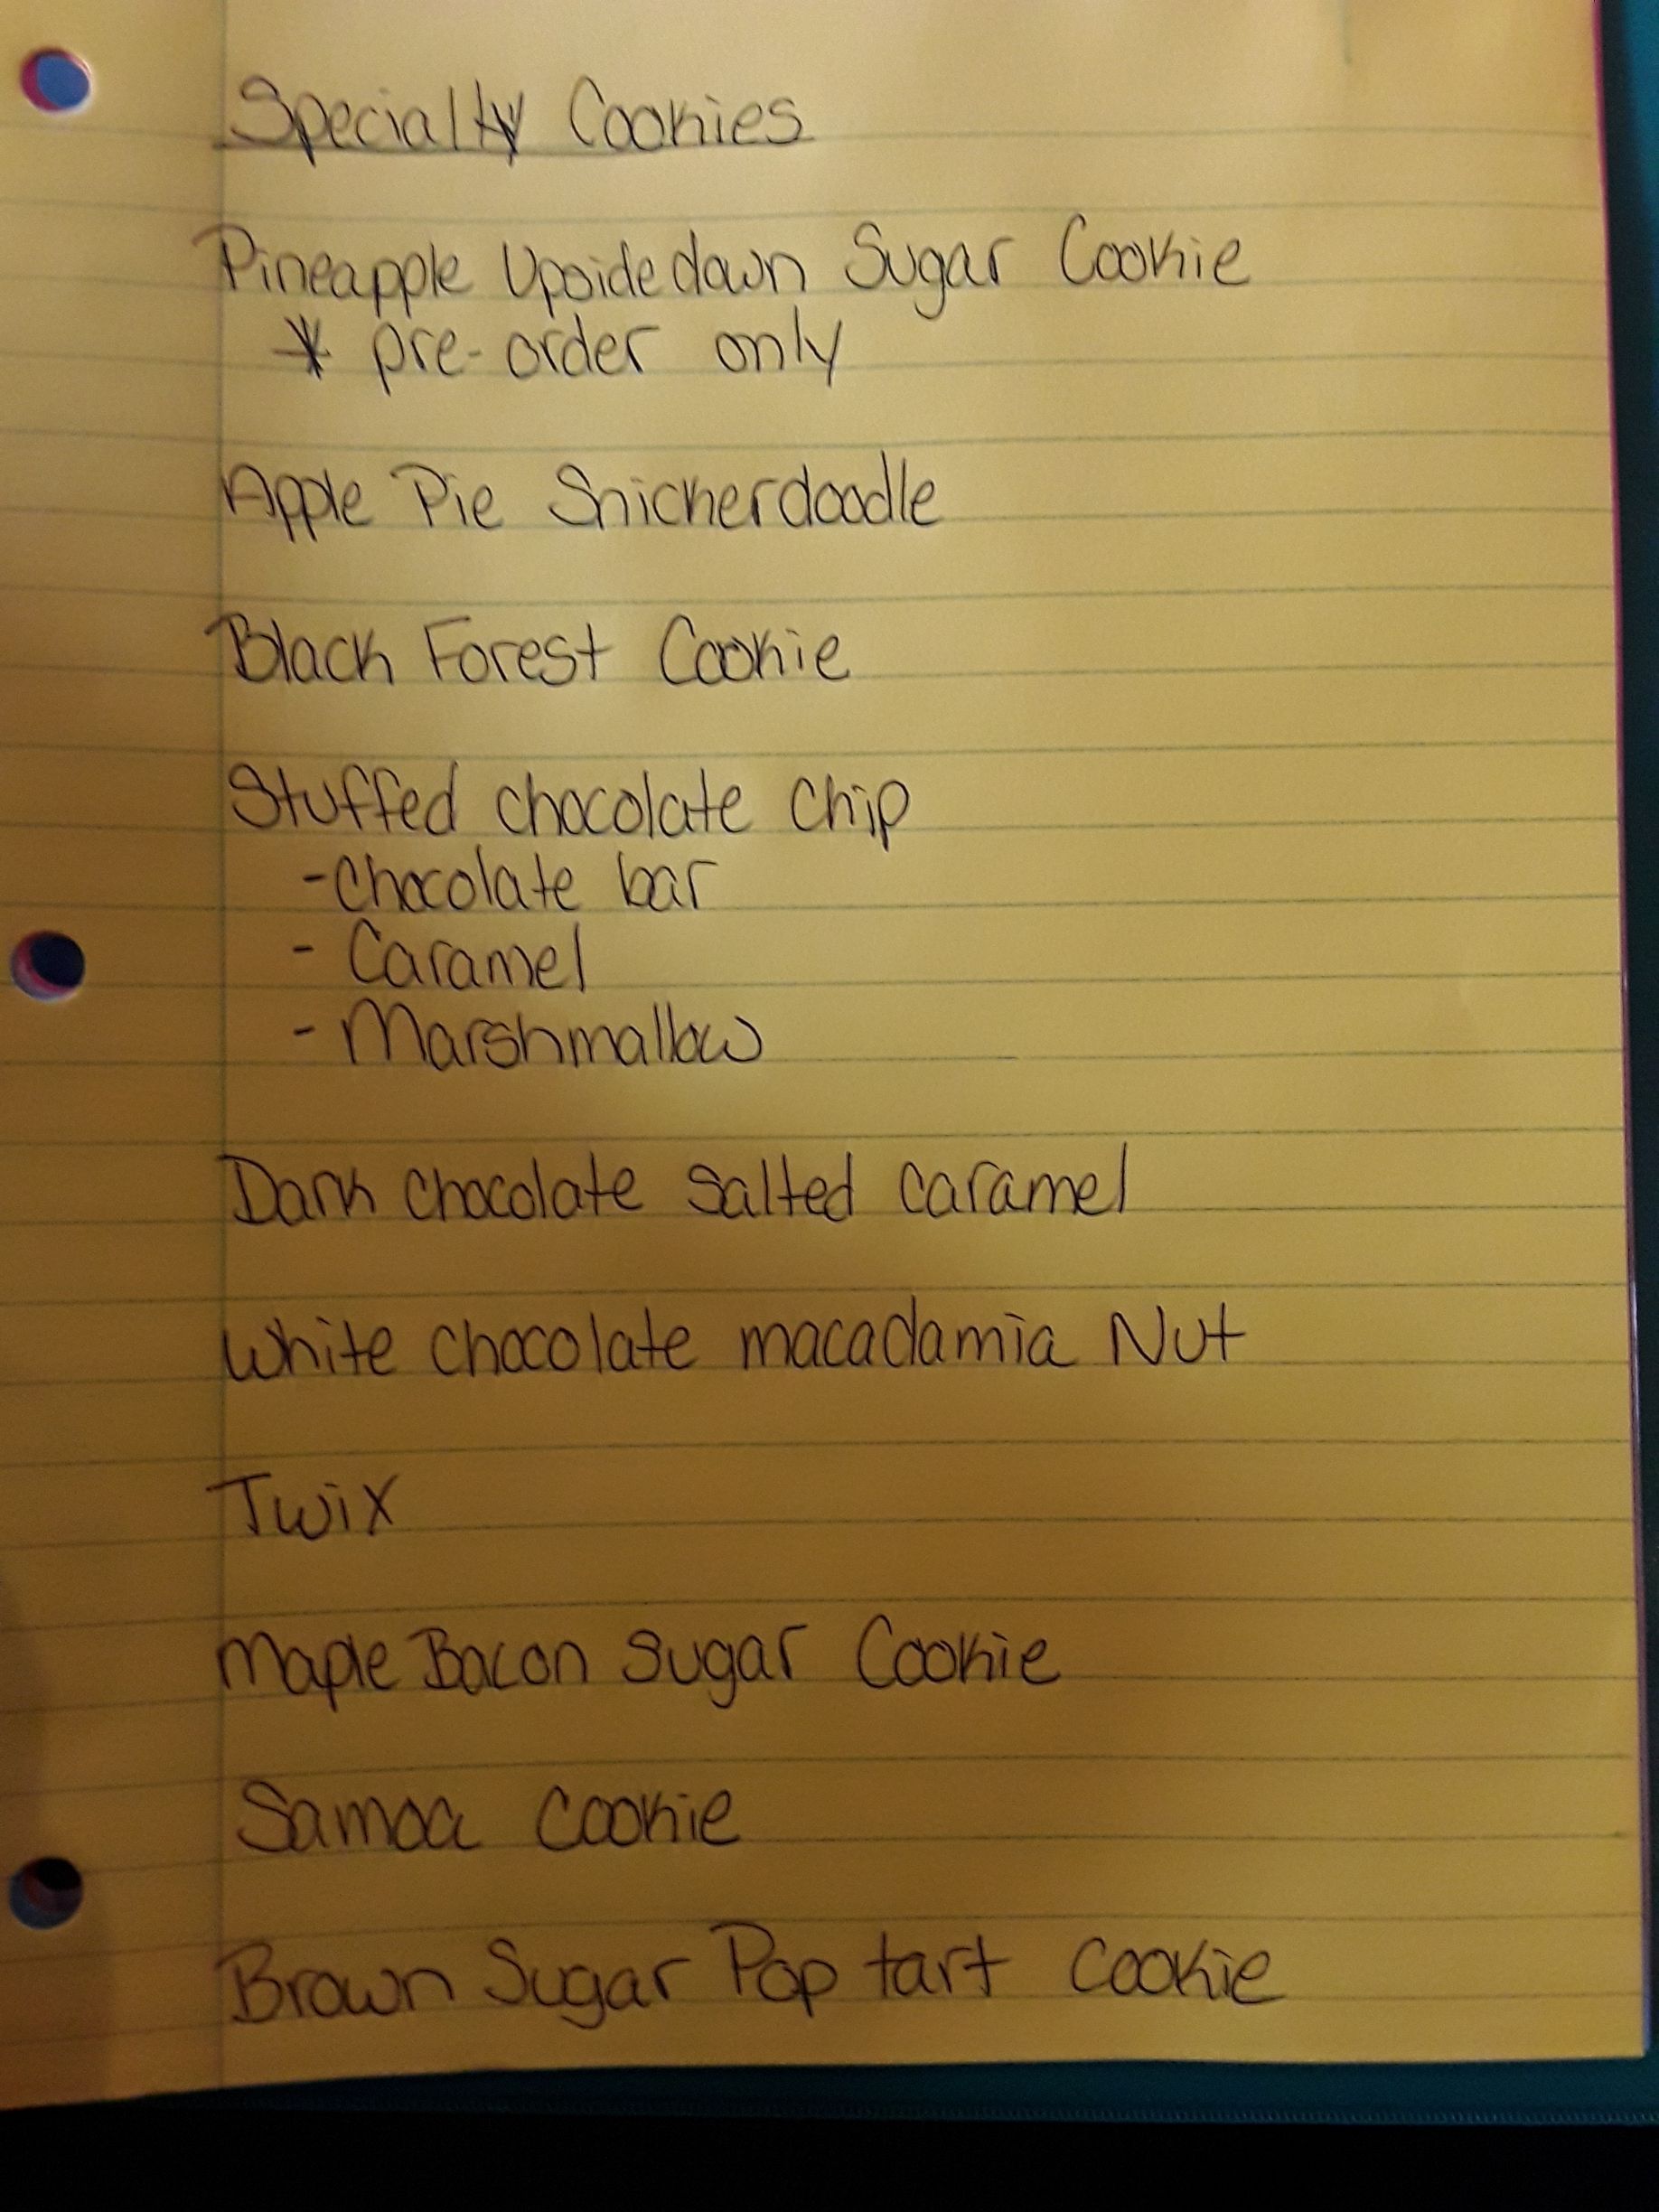 Specialty Cookies
Pineapple Upside down Sugar Cookie
* pre-order only
Apple Pie Snickerdoodle
Black Forest Cookie
Stuffed chocolate chip
- Chocolate bar
- Caramel
- Marshmallow
Dark chocolate salted caramel
White chocolate macadamia Nut
Twix
Maple Bacon Sugar Cookie
Samoa Cookie
Brown Sugar Pop tart Cookie